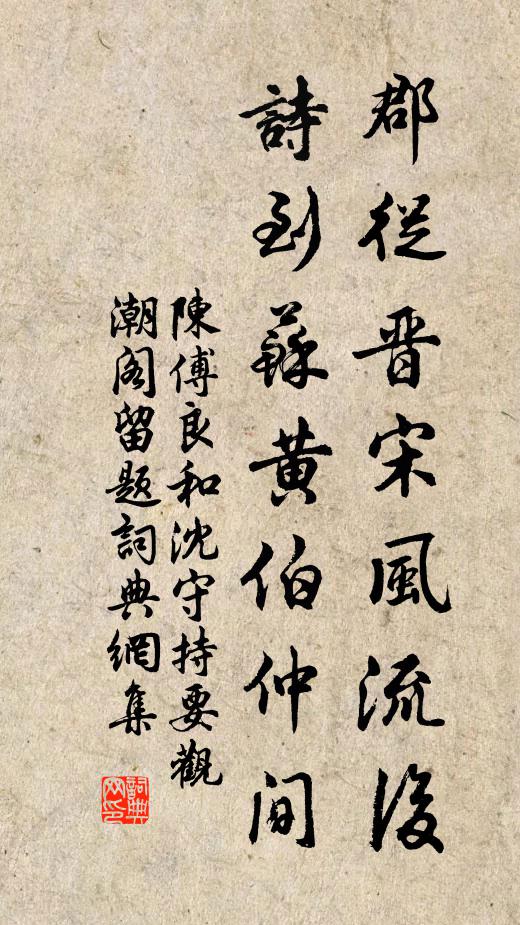 郡從晋宋風流後
詩到蘇黄伯仲间
陳傅良和沈守持要觀
潮阁留題詞典網集
詞典
网印